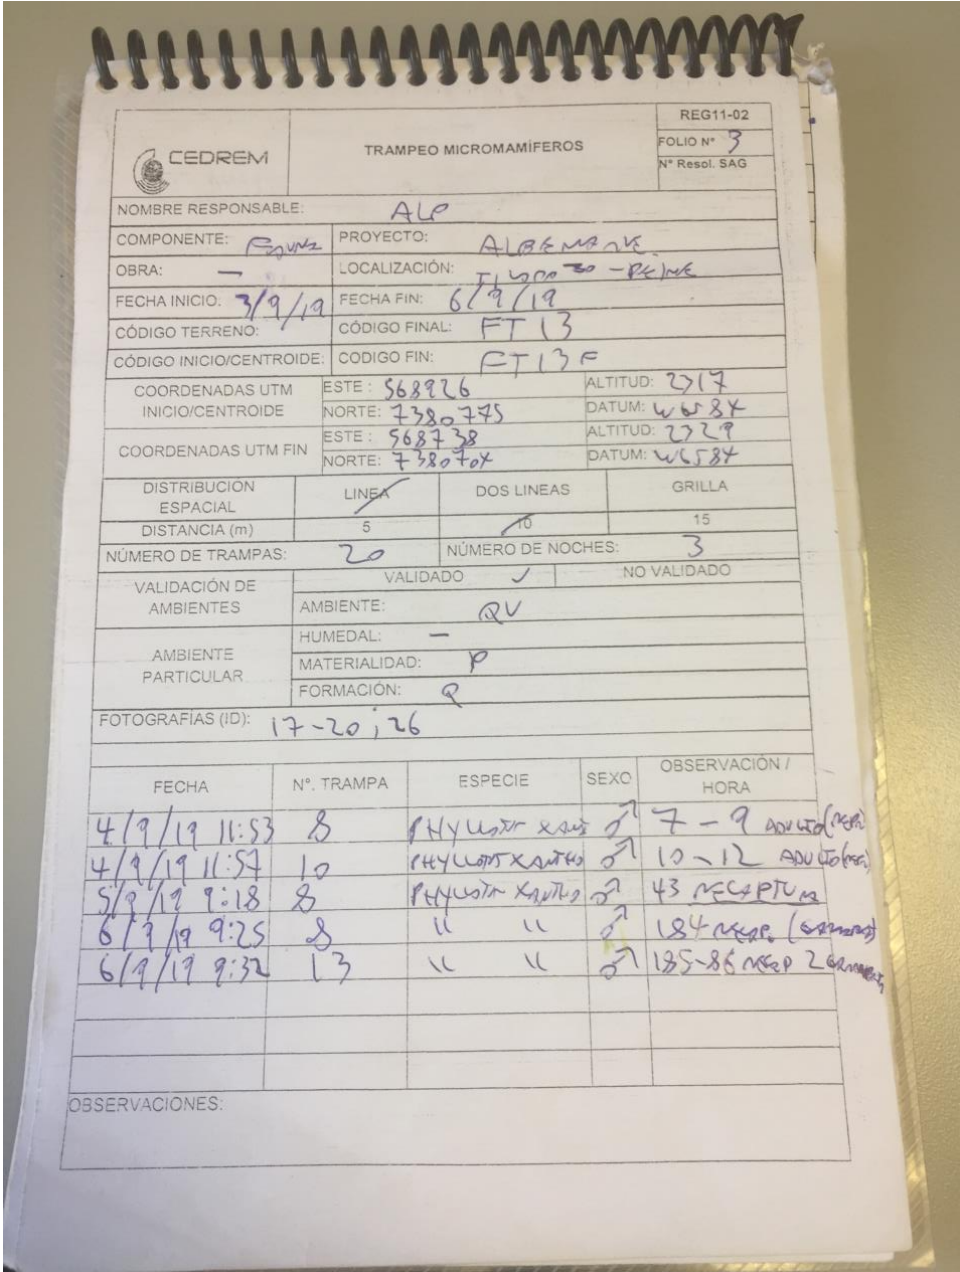 REG11-02
CEDREM
TRAMPEO MICROMAMÍFEROS
FOLIO N° 3
N° Resol. SAG
NOMBRE RESPONSABLE: ALP
COMPONENTE: FAUNA PROYECTO: ALBEMARLE
OBRA: — LOCALIZACIÓN: - PEINE
FECHA INICIO: 3/9/19 FECHA FIN: 6/9/19
CÓDIGO TERRENO: CÓDIGO FINAL: FT13
CÓDIGO INICIO/CENTROIDE: CODIGO FIN: FT13F
COORDENADAS UTM INICIO/CENTROIDE ESTE : 568926 ALTITUD: 2317
NORTE: 7380775 DATUM: WGS84
COORDENADAS UTM FIN ESTE : 568738 ALTITUD: 2329
NORTE: 7380704 DATUM: WGS84
DISTRIBUCIÓN ESPACIAL LINEA DOS LINEAS GRILLA
DISTANCIA (m) 5 10 15
NÚMERO DE TRAMPAS: 20 NÚMERO DE NOCHES: 3
VALIDACIÓN DE AMBIENTES VALIDADO ✓ NO VALIDADO
AMBIENTE: QV
AMBIENTE PARTICULAR HUMEDAL: —
MATERIALIDAD: P
FORMACIÓN: Q
FOTOGRAFÍAS (ID): 17-20; 26
FECHA N°. TRAMPA ESPECIE SEXO OBSERVACIÓN / HORA
4/9/19 11:53 8 PHYLLOTIS XANT ♂ 7-9 ADULTO
4/9/19 11:57 10 PHYLLOTIS XANTHO ♂ 10-12 ADULTO
5/9/19 9:18 8 PHYLLOTIS XANTHO ♂ 43 RECAPTURA
6/9/19 9:25 8 " " ♂ 184 RECAP.
6/9/19 9:32 13 " " ♂ 185-86 RECAP 2
OBSERVACIONES: